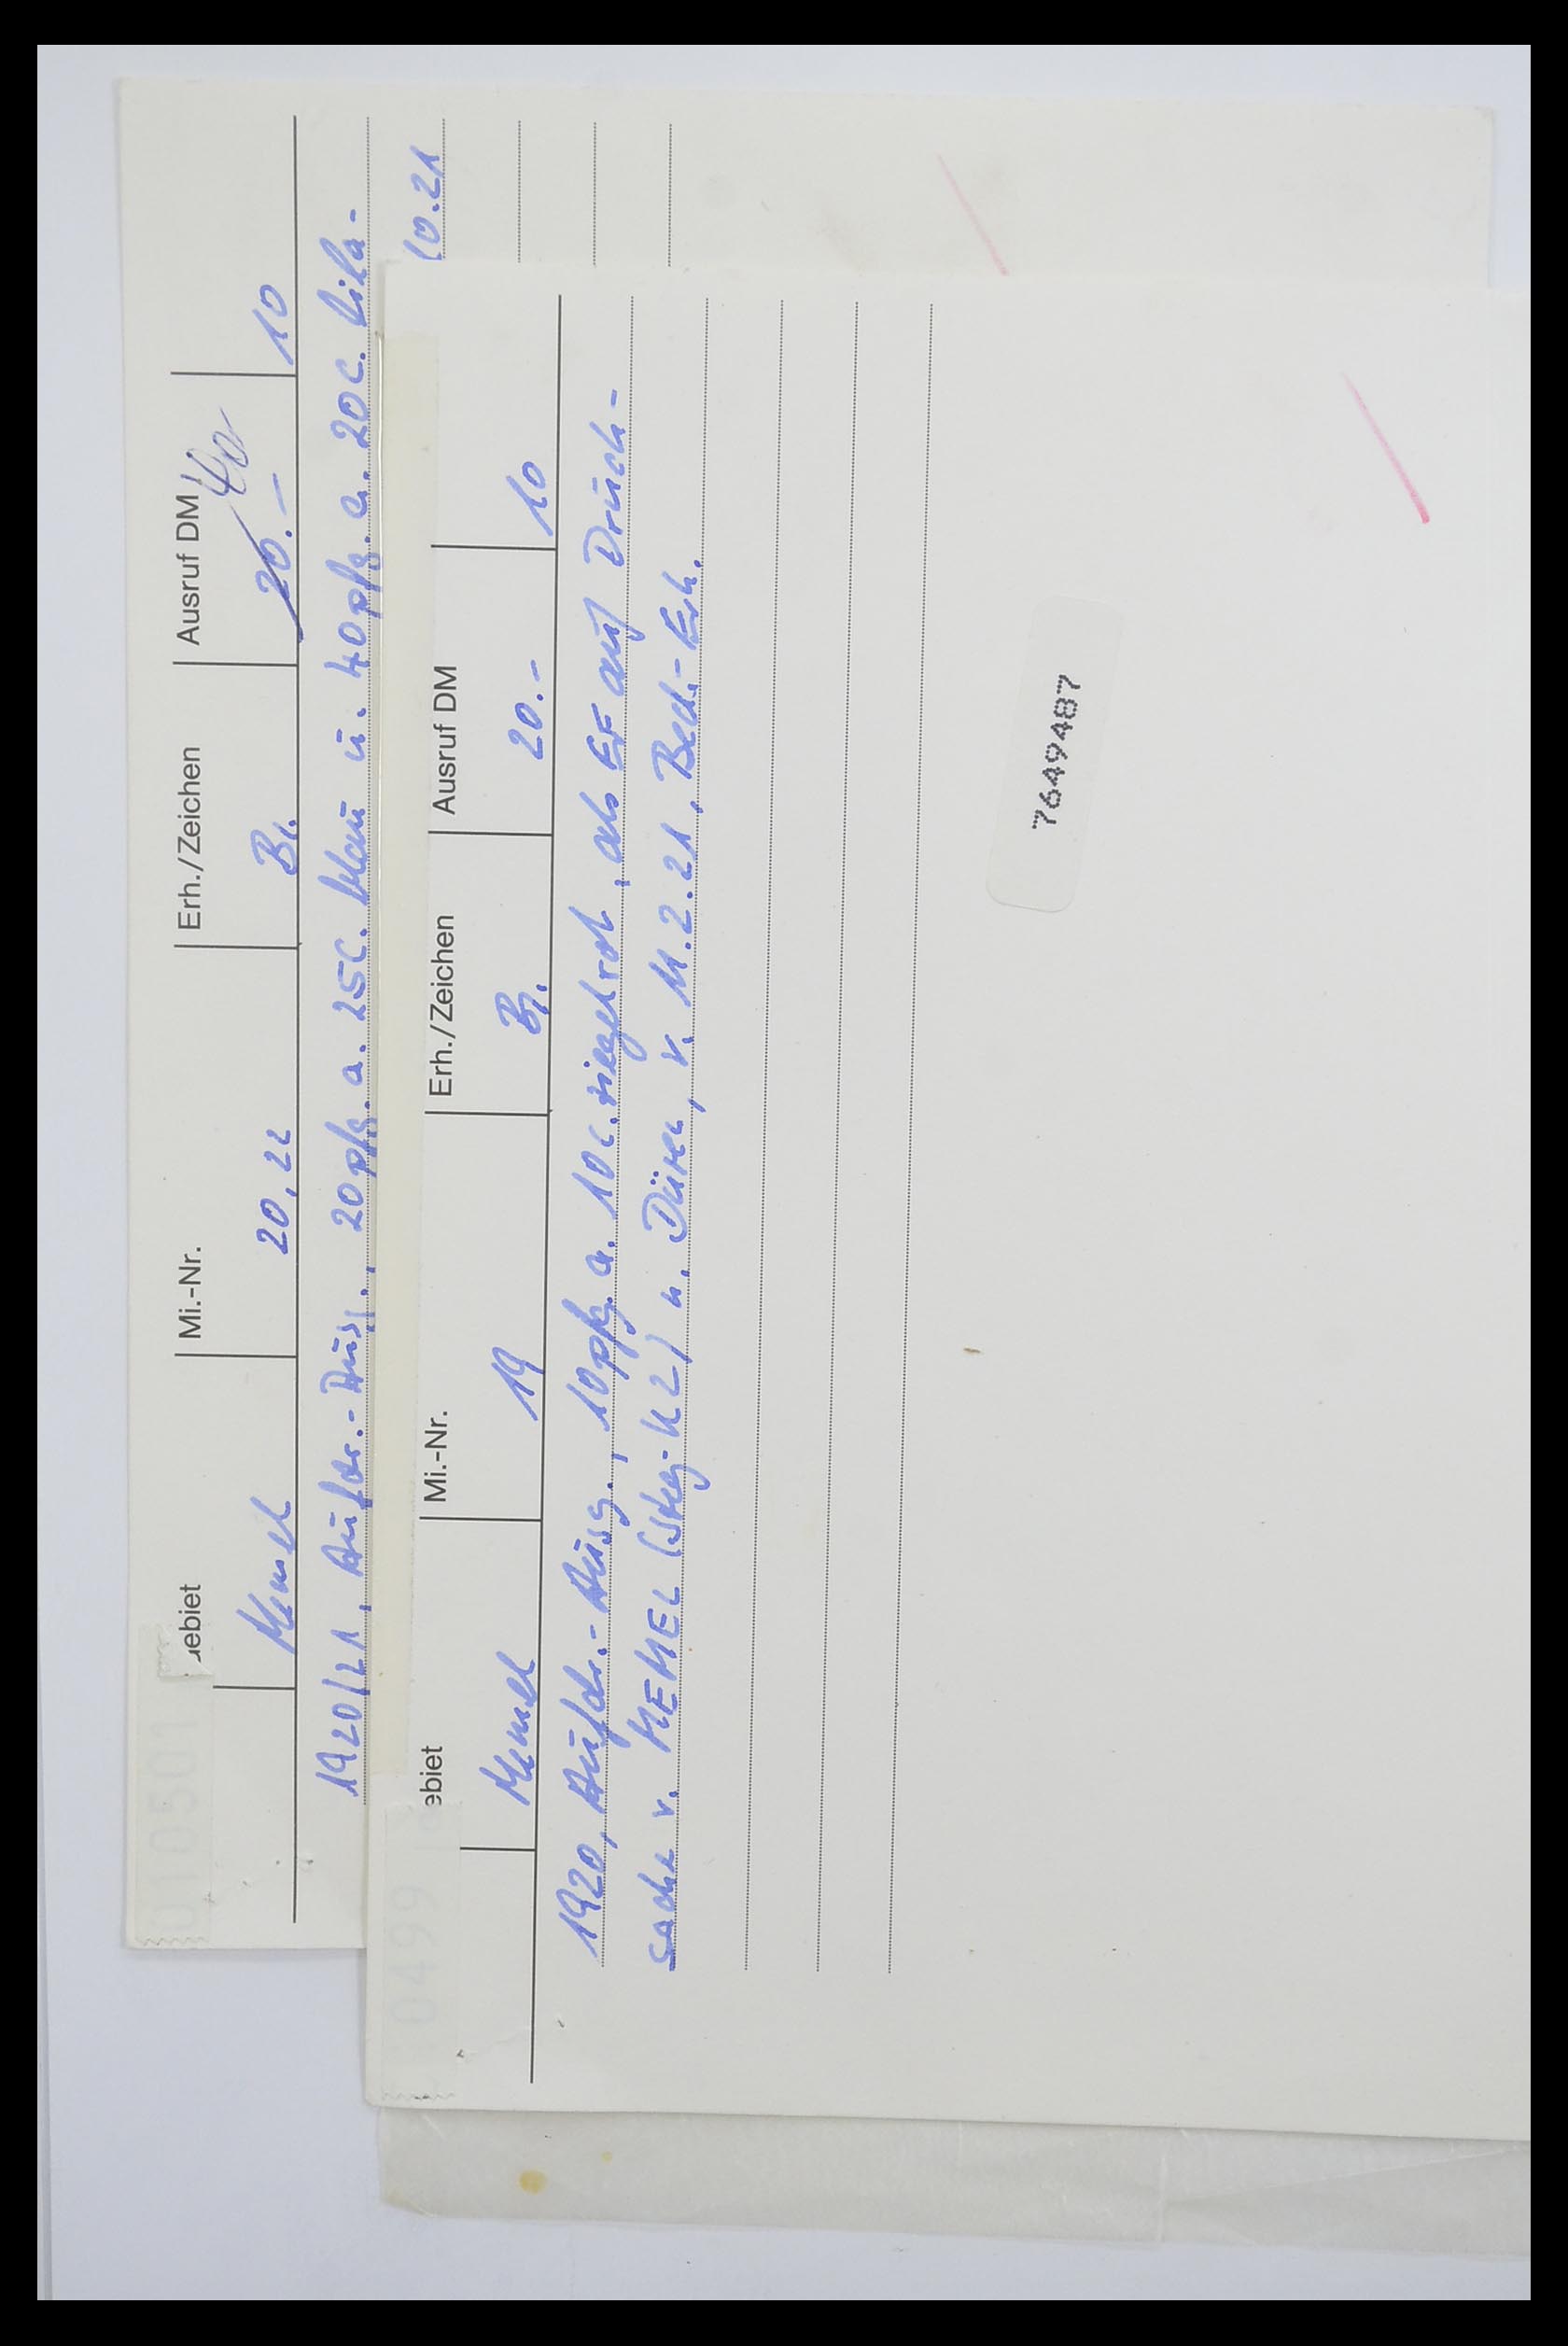 ebiet Mi.-Nr. Erh./Zeichen Ausruf DM
Memel 20, 22 Br. 20.- 40 10
1920/21, Aufdr.-Ausg., 20 pfg. a. 25 c. blau u. 40 pfg. a. 20 c. lila-
10.21
01050
ebiet Mi.-Nr. Erh./Zeichen Ausruf DM
Memel 19 Br. 20.- 10
1920, Aufdr.-Ausg., 10 pfg. a. 10 c. ziegelrot, als EF auf Druck-
sache v. MEMEL (Steg-K2) n. Düren, v. 11.2.21, Bed.-Erh.
0499
7649487